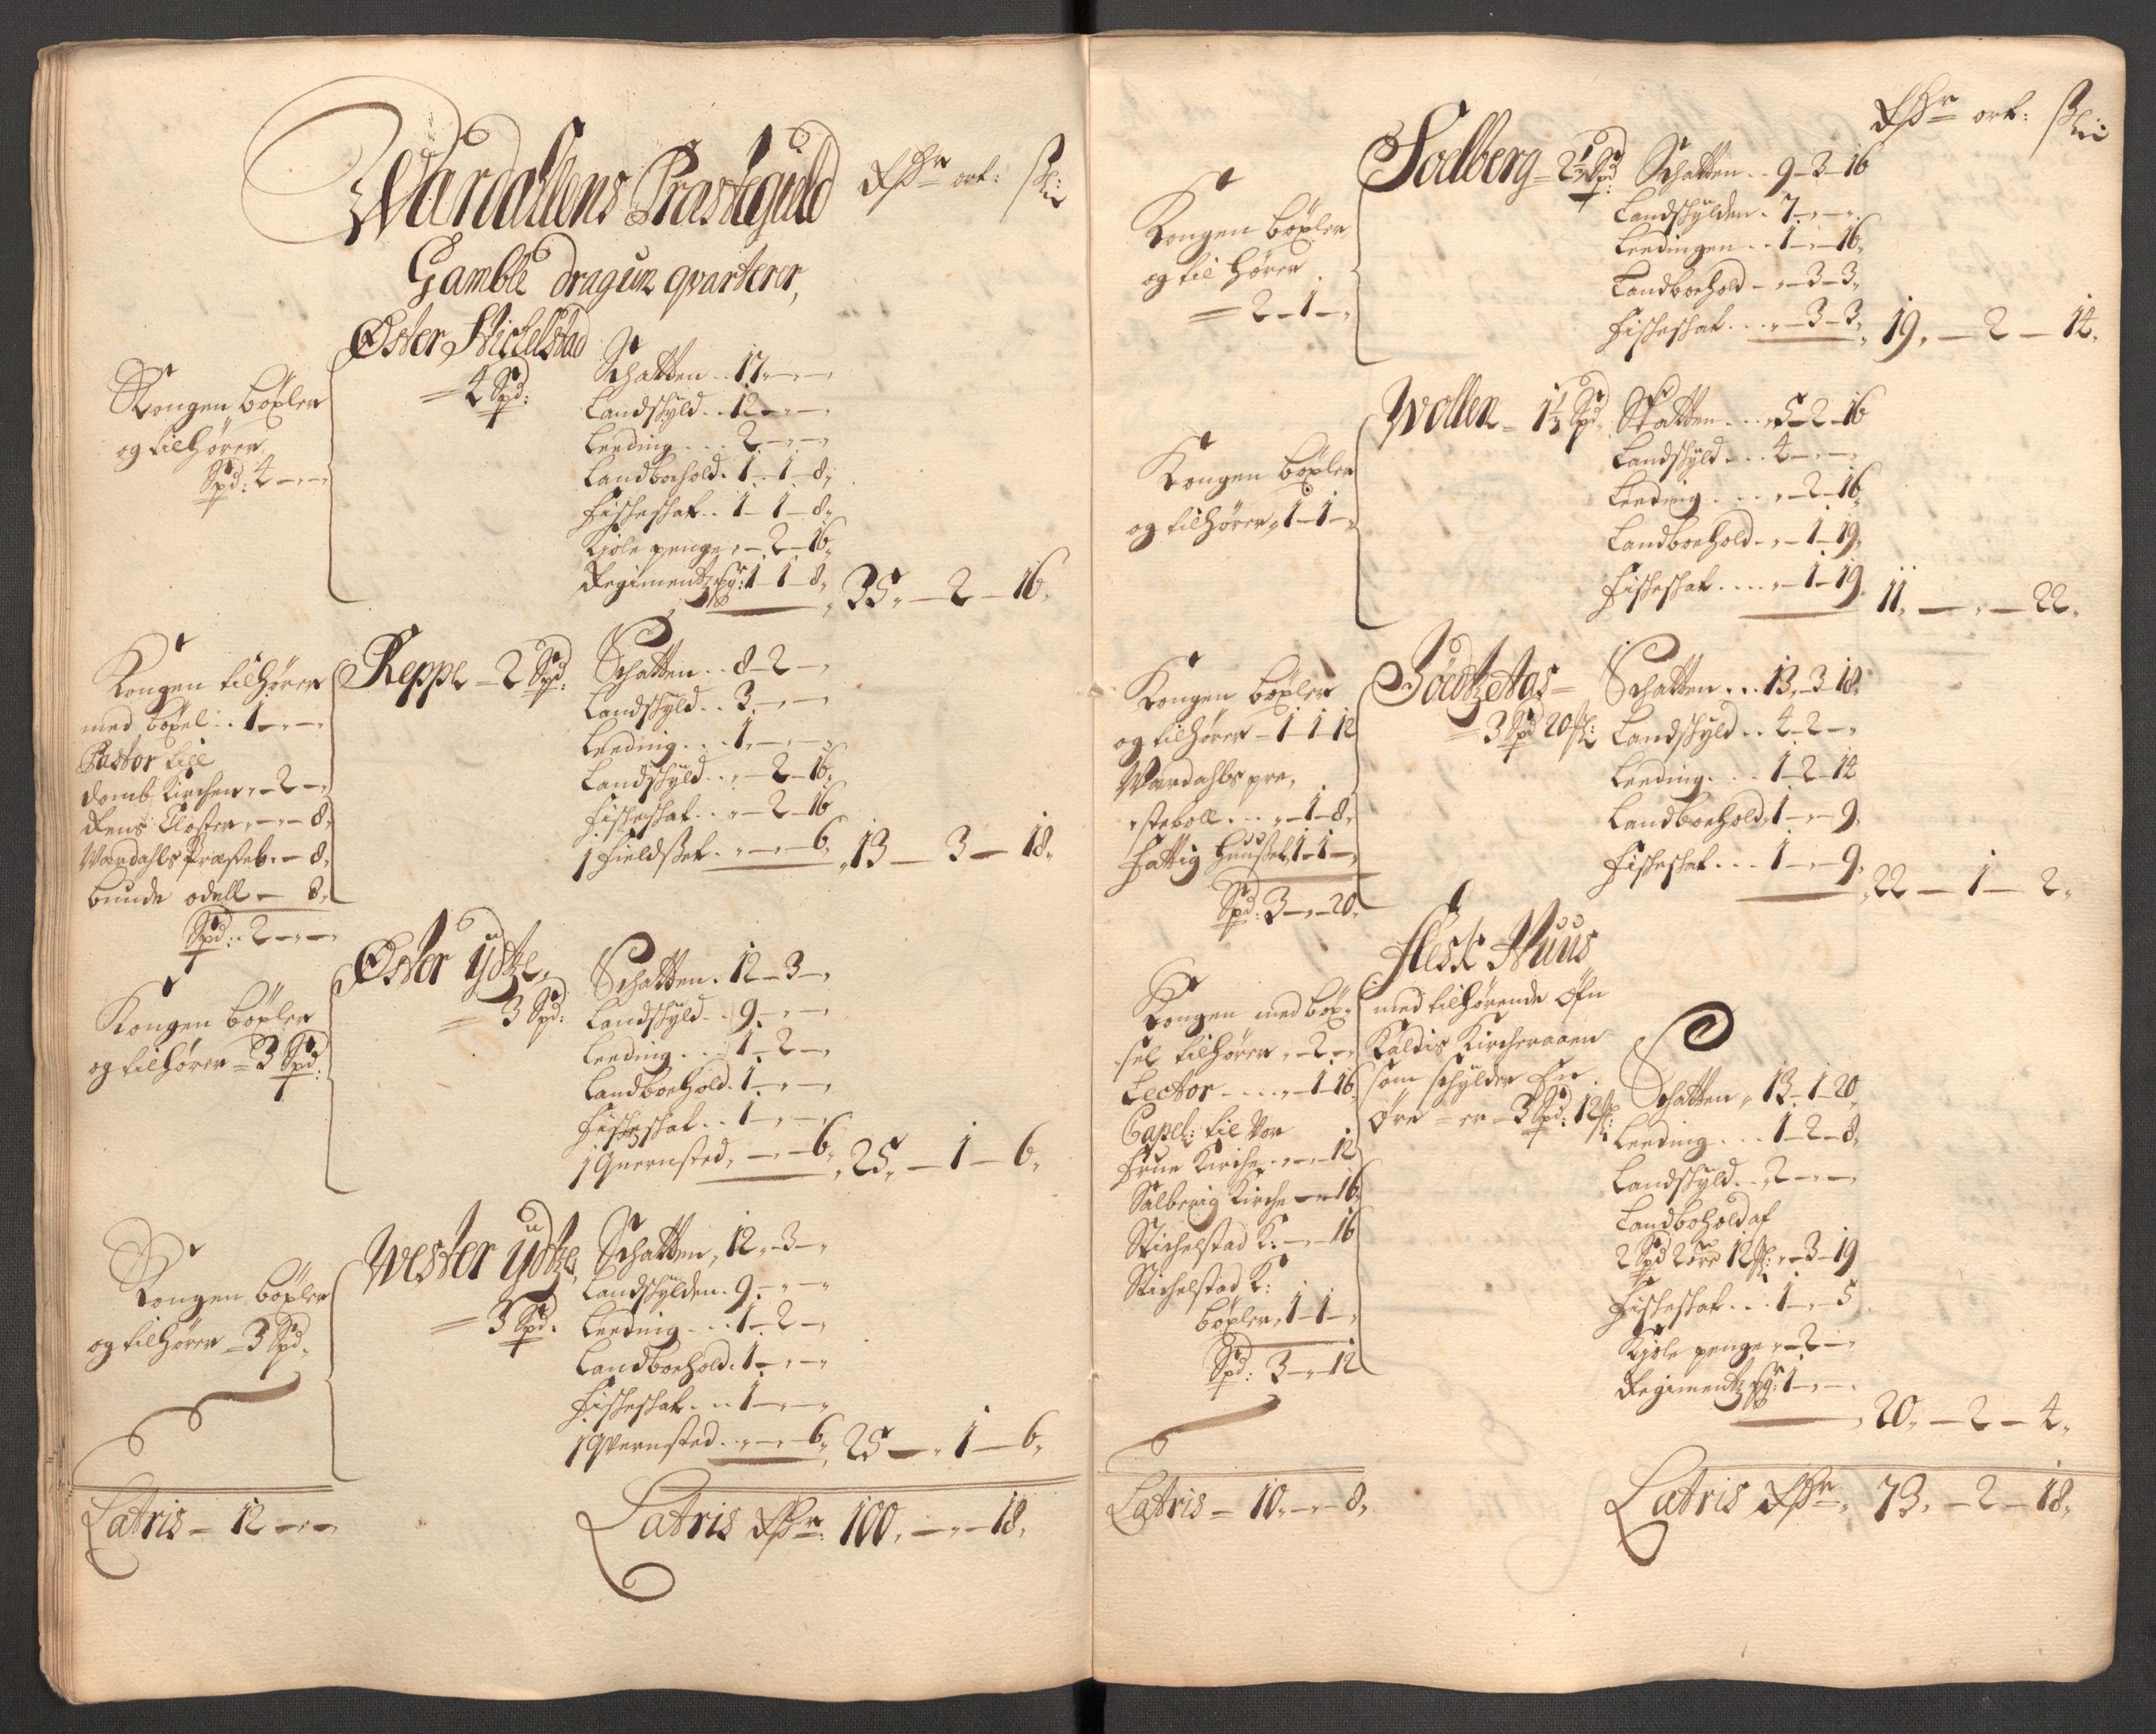 Wardahlens Præstegield Rdr ort: sk:
Gamble dragun qvarterer,
Øster Stichelstad
= 4 Spd:
Kongen böxler
og tilhörer
Spd: 4 - - -
Schatten .. 17 - - -
Landskyld .. 12 - - -
Leeding ... 2 - - -
Landboehold . 1 - 1 - 8,
Fiskeskat .. 1 - 1 - 8,
Kiöle penge , - 2 - 16,
Regimentz : 1 - 1 - 8, 35, - 2 - 16,
Reppe - 2 Spd:
Kongen tilhörer
med böxel .. 1 - - -
Pastor till
domb Kirchen , - 2 - ,
Rens Closter , - - 8,
Wardahls Præsteb. - 8,
bunde odell - 8,
Spd: . 2 - - -
Schatten .. 8 - 2 - ,
Landskyld .. 3 - - -
Leeding ... 1, - - -
Landskyld .. , - 2 - 16,
Fiskeskat .. , - 2 - 16
1 fieldsset . , - - 6, 13 - 3 - 18,
Øster ydtze,
= 3 Spd:
Kongen böxler
og tilhörer = 3 Spd:
Schatten . 12 - 3 - ,
Landskyld .. 9 - - -
Leeding ... 1 - 2 - ,
Landboehold . 1 - - -
Fiskeskat .. 1 - - -
1 Quernsted , - - 6, 25, - 1 - 6,
Wester ydtze,
= 3 Spd.
Kongen böxler
og tilhörer = 3 Spd,
Schatten , 12 - 3 - ,
Landskylden . 9 - - -
Leeding ... 1 - 2 - ,
Landboehold . 1 - - -
Fiskeskat ... 1 - - -
1 Qvernsted .. , - - 6, 25 - , 1 - 6,
Latris - 12 - - -
Latris Rdr: 100, - - 18,
Rdr ort: sk:
Soelberg - 2 1/3 Spd:
Kongen böxler
og til hörer
= 2 - 1 - ,
Schatten .. 9 - 3 - 16
Landskylden . 7 - - -
Leedingen .. 1 - , - 16,
Landboehold - , - 3 - 3,
Fiskeskat ... , - 3 - 3, 19, - 2 - 14,
Wollen - 1 1/3 Spd,
Kongen böxler
og tilhörer , 1 - 1 - ,
Skatten ... , 5 - 2 - 16
Landskyld ... 4 - - -
Leeding ... , - 2 - 16,
Landboehold - , - 1 - 19,
Fiskeskat .... , - 1 - 19, 11, - , - 22,
= 3 Spd 20 sk:
Kongen böxler
og tilhörer - 1 - 1 - 12
Wardahls pre,
steboll ... , - 1 - 8,
Fattig Huusset, 1 - 1 - ,
Spd: 3 - , - 20,
Schatten ... 13, - 3 - 18,
Landskyld .. 4 - 2 - ,
Leeding ... 1 - 2 - 14
Landboehold , 1 - , - 9,
Fiskeskat ... 1 - , - 9, 22 - 1 - 2,
Flesk Huus
med tilhörende Øfn
Kaldis Kircheraaen
som schylder En
Øre = er - 3 Spd: 12 sk:
Kongen med böx,
sel tilhörer , - 2 - ,
Lector .... , - 1 - 16,
Capel: til Vor
Frue Kirche .. , - , 12
Salberig Kirche - , - 16,
Stichelstad K: - , - 16
Stichelstad K:
böxler , 1 - 1 - ,
Spd: 3 - , - 12
Schatten , 13 - 1 - 20,
Leeding ... 1 - 2 - 8,
Landskyld .. , 2 - - -
Landbohold af
2 Spd 2 öre 12 sk: , - 3 - 19
Fiskeskat ... 1 - , - 5
Kiöle penge , - 2 - ,
Regimentz : 1 - - - 20, - 2 - 4,
Latris - 10, - , - 8,
Latris Rdr, 73, - 2 - 18,